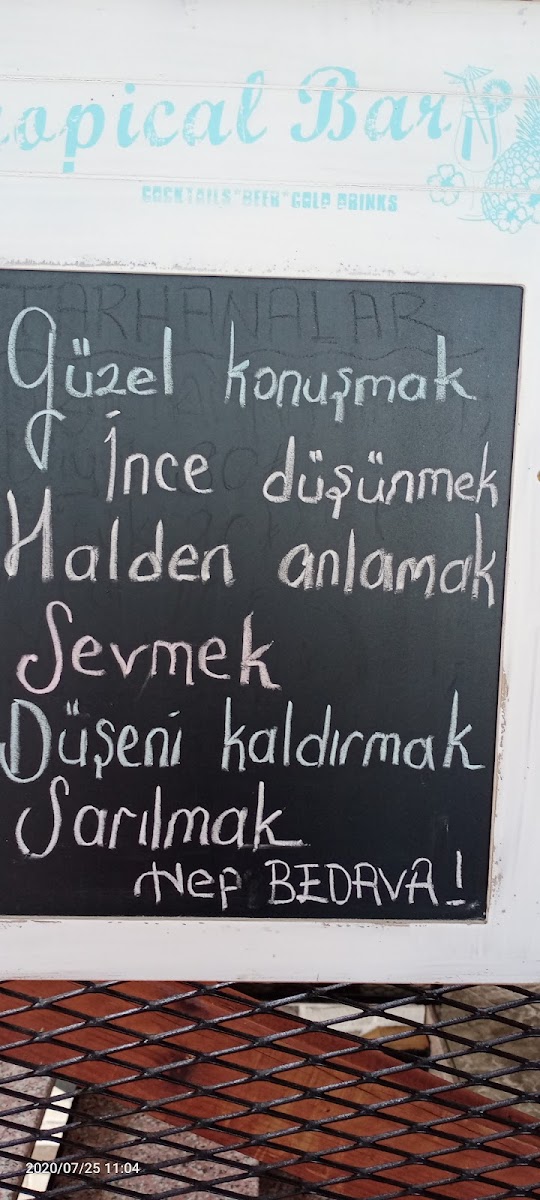 ropical Bar
COCKTAILS*BEER*COLD DRINKS
TARHANALAR
Güzel konuşmak
İnce düşünmek
Halden anlamak
Sevmek
Düşeni kaldırmak
Sarılmak
Hep BEDAVA!
2020/07/25 11:04